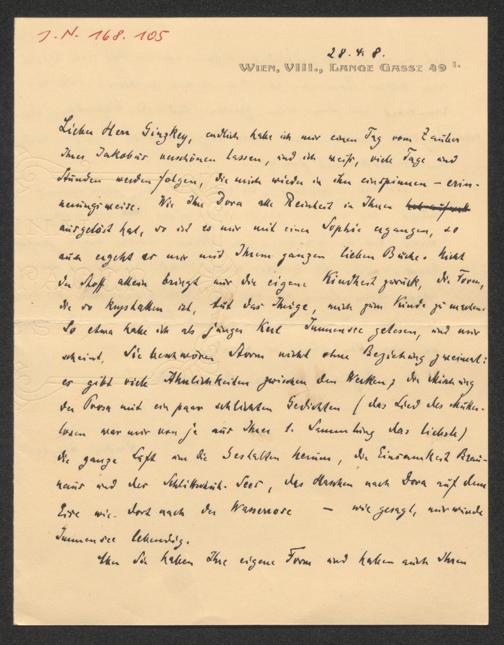 J. N. 168.105
28.4.8.
WIEN, VIII., LANGE GASSE 49 I.
Lieber Herr Ginzkey, endlich habe ich mir einen Tag vom Zauber
Ihres Jakobus verschönen lassen, und ich weiß, viele Tage und
Stunden werden folgen, die mich wieder in ihn einspinnen – erin-
nerungsweise. Wie Ihre Dora alle Reinheit in Ihnen
ausgelöst hat, so ist es mir mit einer Sophie ergangen, so
auch ergeht es mir mit Ihrem ganzen lieben Buche. Nicht
der Stoff allein bringt mir die eigene Kindheit zurück, die Form,
die so krystallen ist, tut das Ihrige, mich zum Kinde zu machen.
So etwa habe ich als junger Kerl Immensee gelesen, und mir
scheint, Sie beschwören Storm nicht ohne Beziehung zweimal:
es gibt viele Ähnlichkeiten zwischen den Werken, die Mischung
der Prosa mit ein paar schlichten Gedichten (das Lied des Mutter-
losen war mir von je aus Ihrer 1. Sammlung das liebste)
die ganze Luft um die Gestalten herum, die Einsamkeit
und der Schlittschuh-Sees, das Haschen nach Dora auf dem
Eise wie dort nach der Wasserrose – wie gesagt, mir wurde
Immensee lebendig.
Aber Sie haben Ihre eigene Form und haben auch Ihren